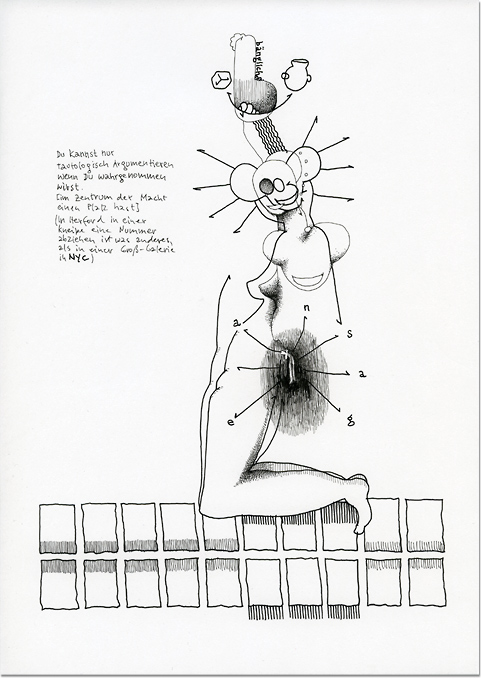 bängliche
Du kannst nur
tautologisch Argumentieren
wenn Du wahrgenommen
wirst.
[im Zentrum der Macht
einen Platz hast]
(in Herford in einer
Kneipe eine Nummer
abziehen ist was anderes
als in einer Groß-Galerie
in NYC)
n
a
s
a
e
g